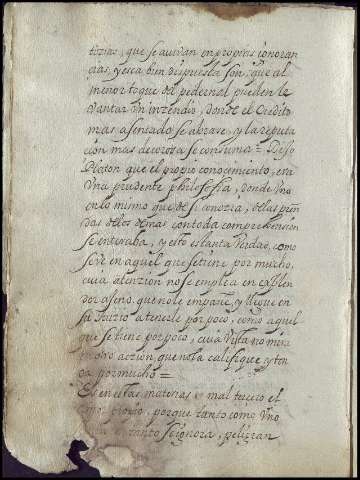 ticias, que se avivan en propias ignoran
cias, yesca bien dispuesta son, que al
menor toque del pedernal pueden le
vantar un incendio, donde el credito
mas asentado se abrase, y la reputa
cion mas decorosa se consuma = Dijo
Platon que el propio conocimiento, era
una prudente philosofia, donde uno
en lo mismo que de si conocia, de las pren
das de los demas con toda comprehension
se enteraba, y esto es tanta verdad, como
se ve en aquel que se tiene por mucho,
cuia atenzion no se emplea en
dor ageno, que no le
su Juizio a tenerle por poco, como aquel
que se tiene por poco, cuia vista no mira
en otro accion, que no la califique y ten
ga por mucho =
Es en estas materias mal tercio el
propio, porque tanto como uno
tanto se ignora, peligran